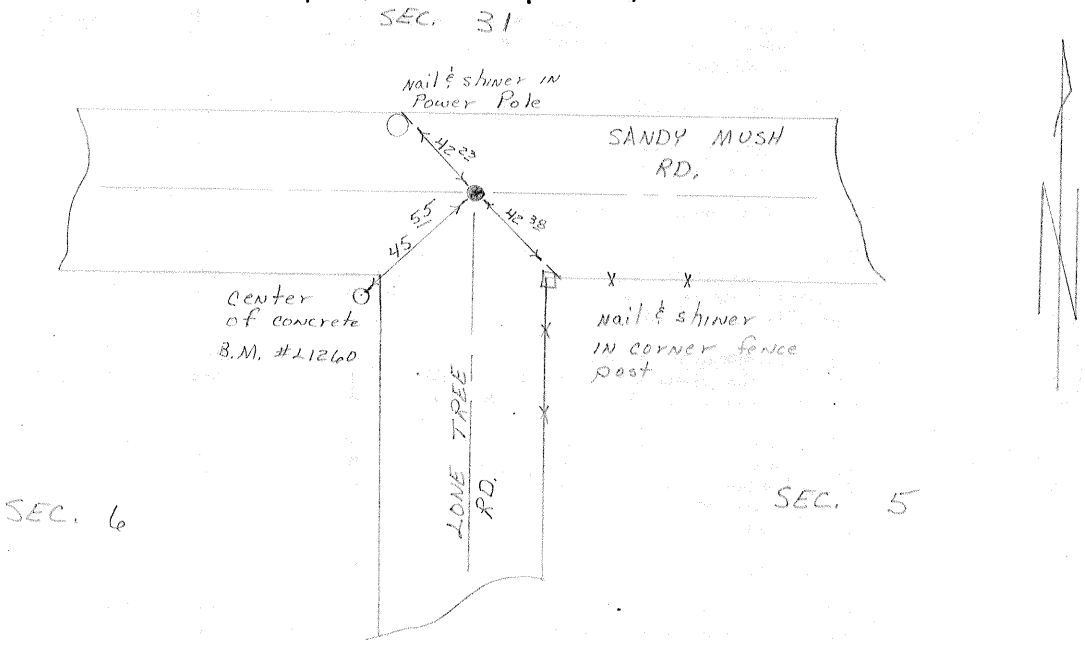 SEC. 31
Nail & shiner IN
Power Pole
SANDY MUSH
RD.
42 23
45 55
42 38
center
of concrete
B.M. #L1260
Nail & shiner
IN corner fence
post
LONE TREE
RD.
SEC. 6
SEC. 5
N